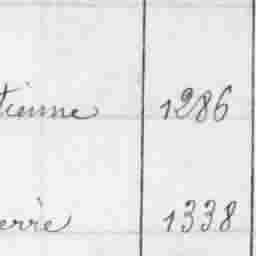 tienne 1286
erre 1338